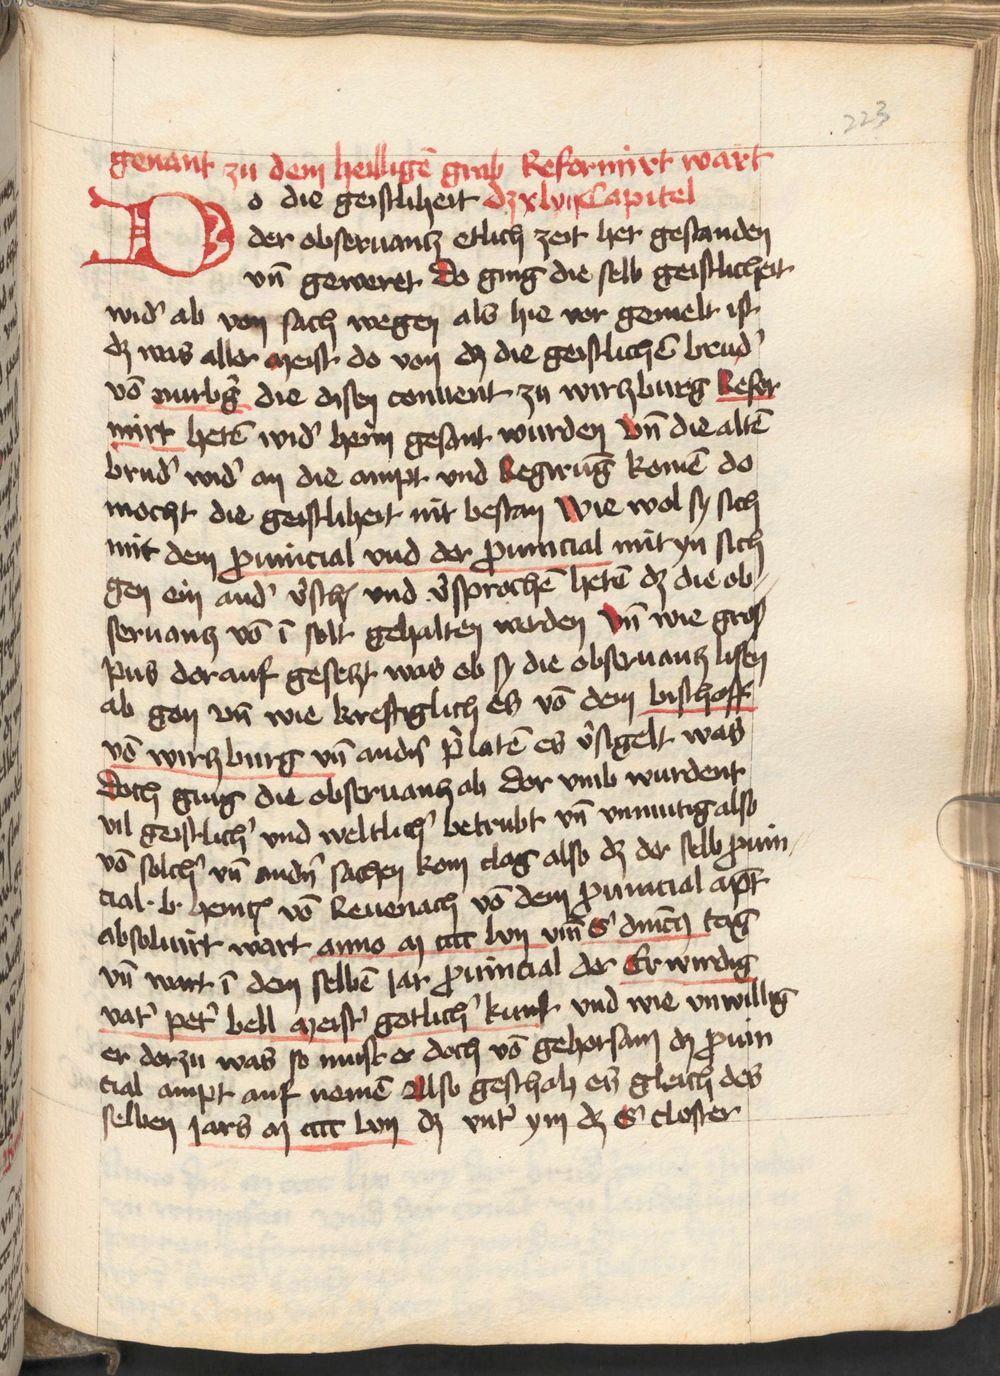 223
genant zu dem heilligē grab Reformirt wart
Do die geistliheit dz xlvij Capitel
der obseruantz etlich zeit her gestanden
vn̄ geweret Do ging die selb geistlicheit
wid' ab von sach wegen als hie vor gemelt ist
dz was aller meist do von dz die geistlichē brud'
vō nurbḡ die disen conuent zu wirzburg Refor
mirt hetē wid' heim gesant wurden Vn̄ die altē
brud' wid' an die ampt vnd Regirūg komē do
mocht die geistliheit nit bestan Wie wol sy sich
mit dem prouincial vnd der prouincial mit yn sich
gen ein and' v'sch vnd v'sprochē hetē dz die ob
seruantz vō ī solt gehalten werden Vn̄ wie gros
pus dorauf gesetzt was ob sy die obseruantz lisen
ab gen vn̄ wie kreftiglich es vō dem bischoff
vō wirtzburg vn̄ andn' p'latē es v'sigelt was
Doch ging die obseruantz ab Dor vmb wurdent
vil geistlich' vnd weltlich' betrubt vn̄ vnmutig also
vō solch' vn̄ andn' sachen kom clag also dz der selb prouin
cial · b · heinr' vō Reuenach vō dem prouincial ampt
absoluirt wart anno m cccc lvij
vn̄ wart ī dem selbē Jar prouincial der Erwirdig
vat' pet' bell meist' gotlich' kunst vnd wie vnwillig
er dorzu was so must er doch vō gehorsam dz prouin
cial ampt auf nemē Also geschah es gleich des
selben Jars m cccc lvij dz vnt' ym dz S' closter